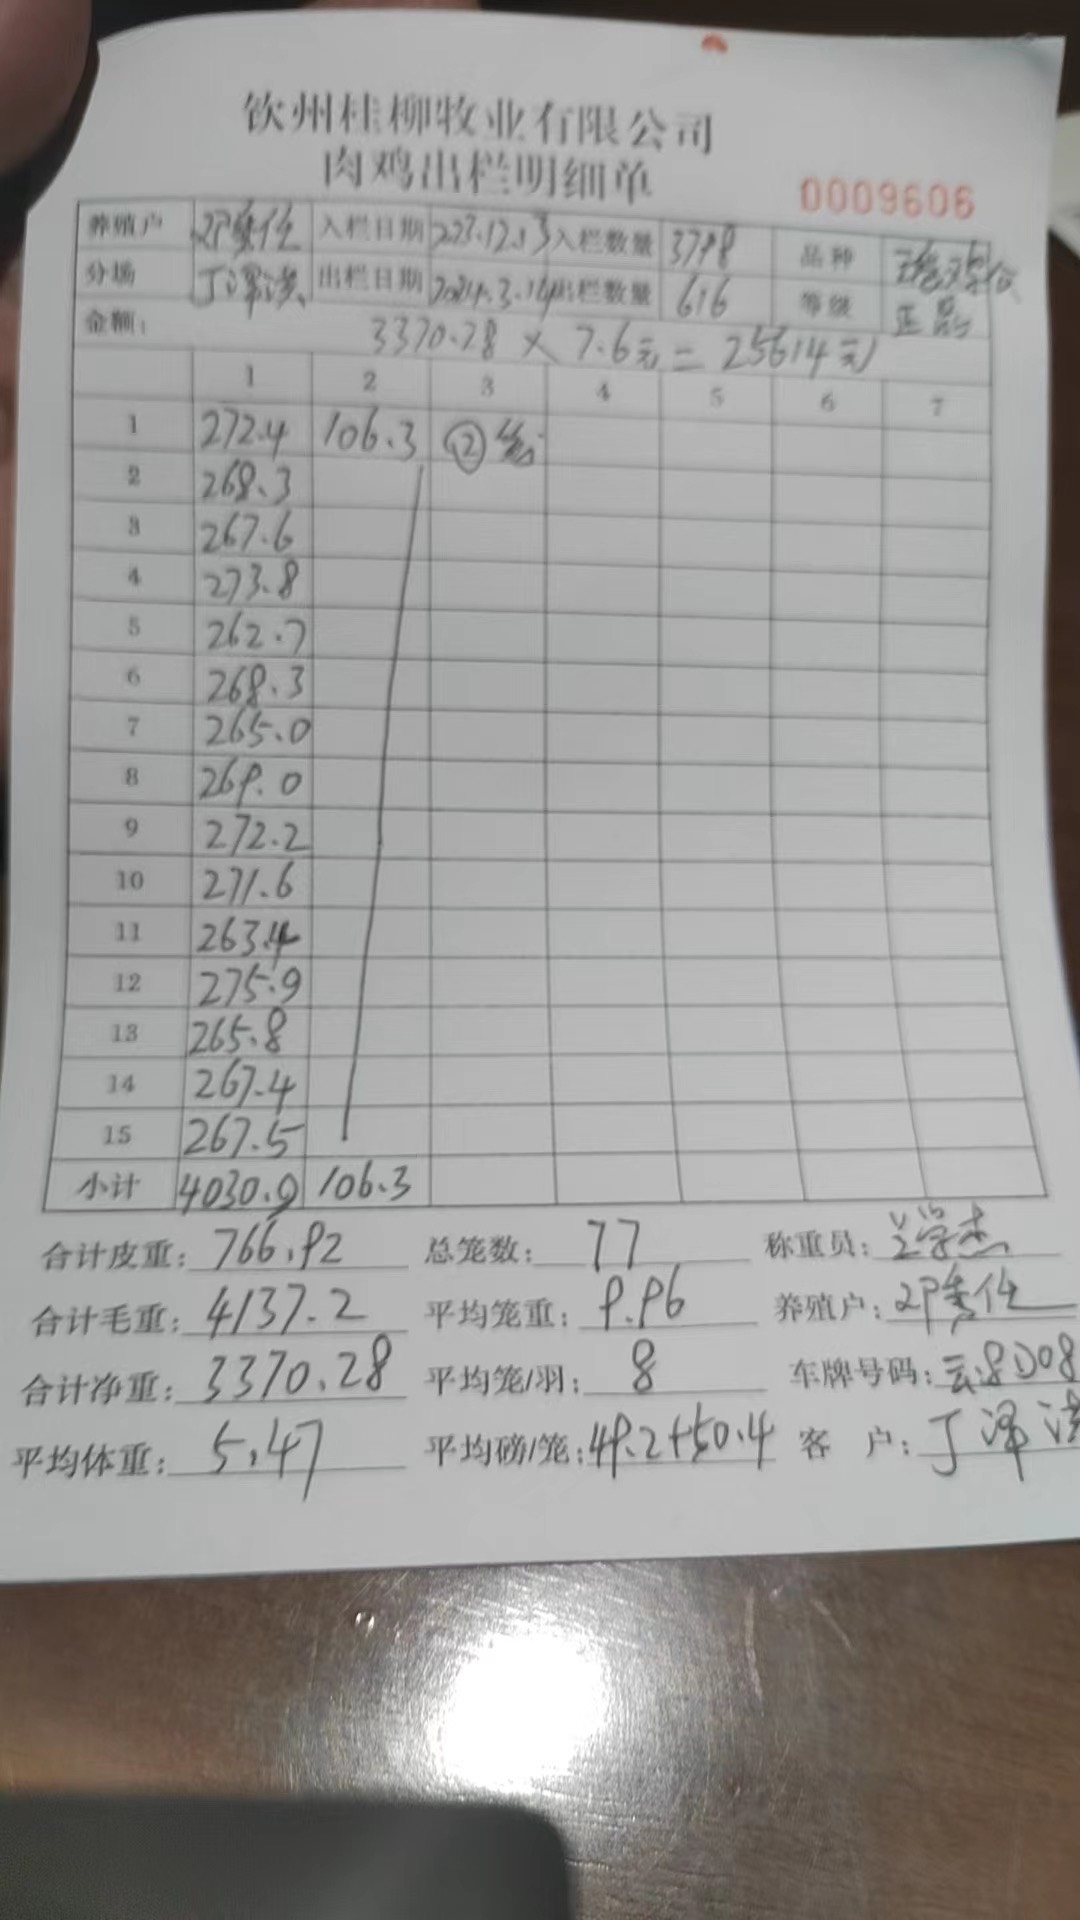 钦州桂柳牧业有限公司
肉鸡出栏明细单
0009606
养殖户 入栏日期 2023.12.13 入栏数量 3798 品种
分场 丁泽洪 出栏日期 2024.3.14 出栏数量 616 等级 正品
金额: 3370.28 × 7.6元 = 25614元
1 2 3 4 5 6 7
1 272.4 106.3 ②笼
2 268.3
3 267.6
4 273.8
5 262.7
6 268.3
7 265.0
8 269.0
9 272.2
10 271.6
11 263.4
12 275.9
13 265.8
14 267.4
15 267.5
小计 4030.9 106.3
合计皮重: 766.92 总笼数: 77 称重员:
合计毛重: 4137.2 平均笼重: 9.96 养殖户:
合计净重: 3370.28 平均笼/羽: 8 车牌号码: 云8D08
平均体重: 5.47 平均磅/笼: 49.2+50.4 客户: 丁泽洪